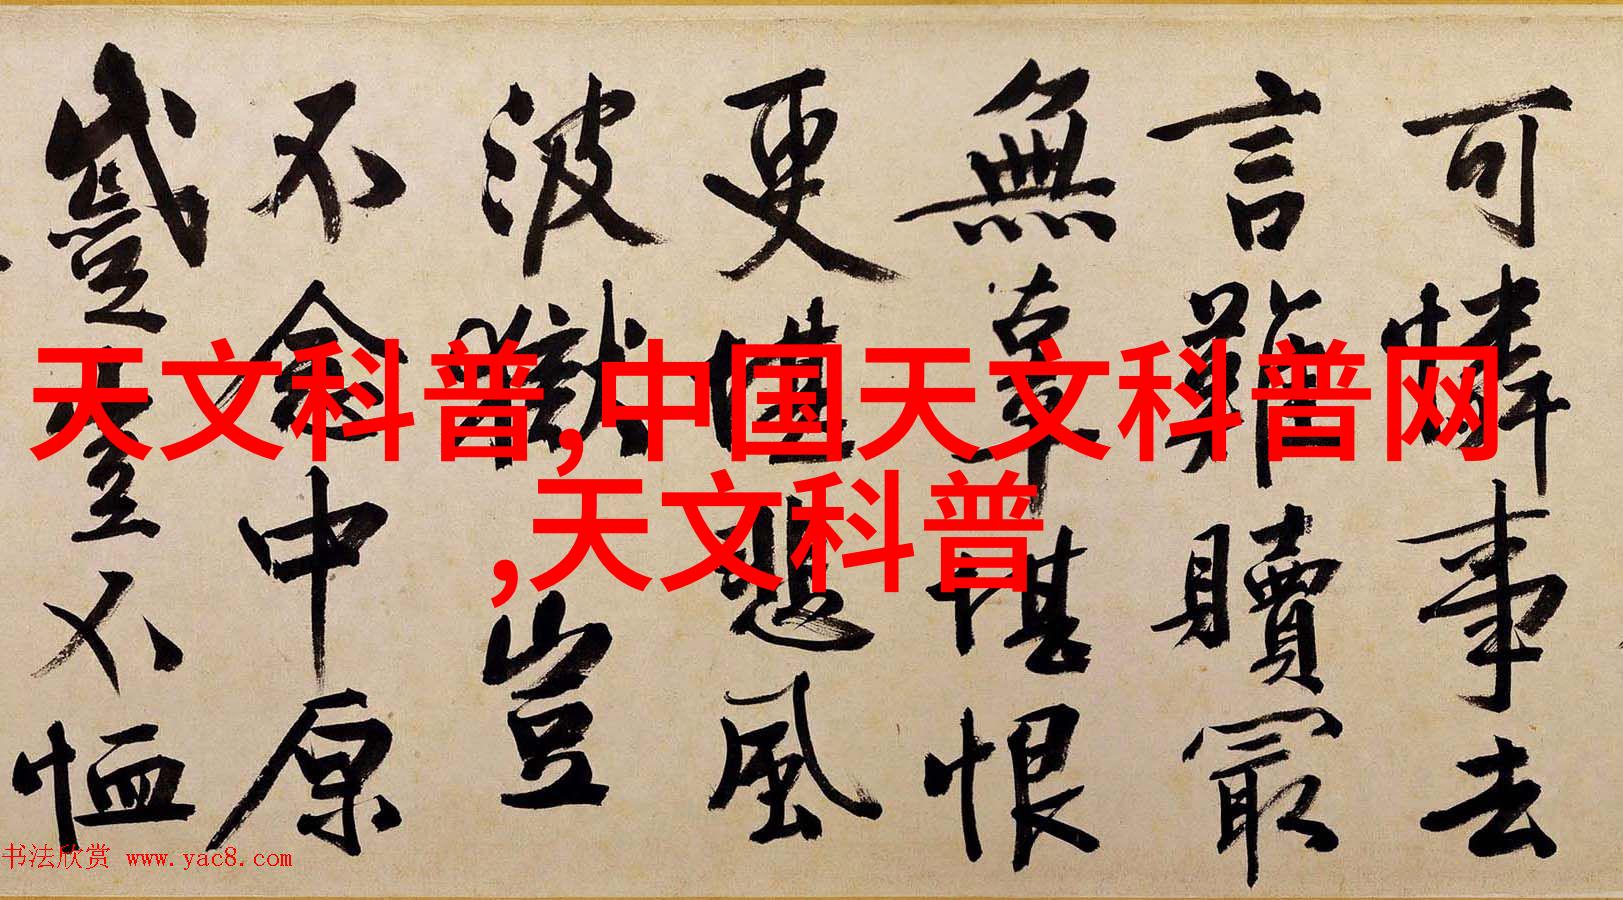 可憐事去
言難贖冣
無辜堪恨
更堪悲風
波獄豈
不念中原
蹙豈不恤
天文科普,中国天文科普网
,天文科普
书法欣赏 www.yac8.com